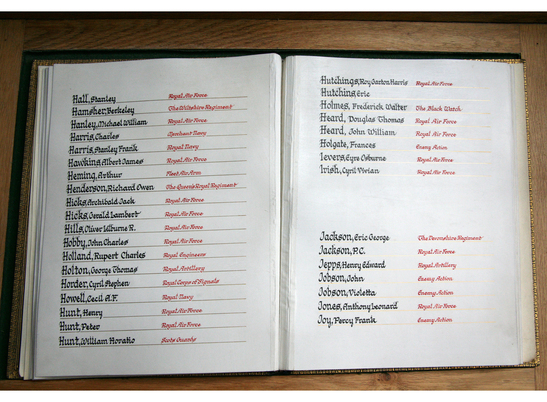 Hall, Stanley Royal Air Force
Hamsher, Berkeley The Wiltshire Regiment
Hanley, Michael William Royal Air Force
Harris, Charles Merchant Navy
Harris, Stanley Frank Royal Navy
Hawkins, Albert James Royal Air Force
Heming, Arthur Fleet Air Arm
Henderson, Richard Owen The Queen's Royal Regiment
Hicks, Archibald Jack Royal Air Force
Hicks, Gerald Lambert Royal Air Force
Hills, Oliver Wilburne R. Royal Air Force
Hobby, John Charles Royal Air Force
Holland, Rupert Charles Royal Engineers
Holton, George Thomas Royal Artillery
Horder, Cyril Stephen Royal Corps of Signals
Howell, Cecil A.F. Royal Navy
Hunt, Henry Royal Air Force
Hunt, Peter Royal Air Force
Hunt, William Horatio Scots Guards
Hutchings, Roy Garton Harris Royal Air Force
Hutchins, Eric
Holmes, Frederick Walter The Black Watch
Heard, Douglas Thomas Royal Air Force
Heard, John William Royal Air Force
Holgate, Frances Enemy Action
Ievers, Eyre Osburne Royal Air Force
Ivish, Cyril Vivian Royal Air Force
Jackson, Eric George The Devonshire Regiment
Jackson, P.C. Royal Air Force
Jepps, Henry Edward Royal Artillery
Jobson, John Enemy Action
Jobson, Violetta Enemy Action
Jones, Anthony Leonard Royal Air Force
Joy, Percy Frank Enemy Action